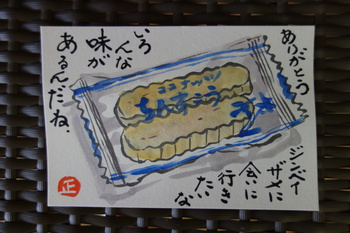 ありがとう
いろんな
味が
あるんだね、
ココナッツ
ちんすこう
ジンベイ
ザメに
会いに
行き
たいな
正